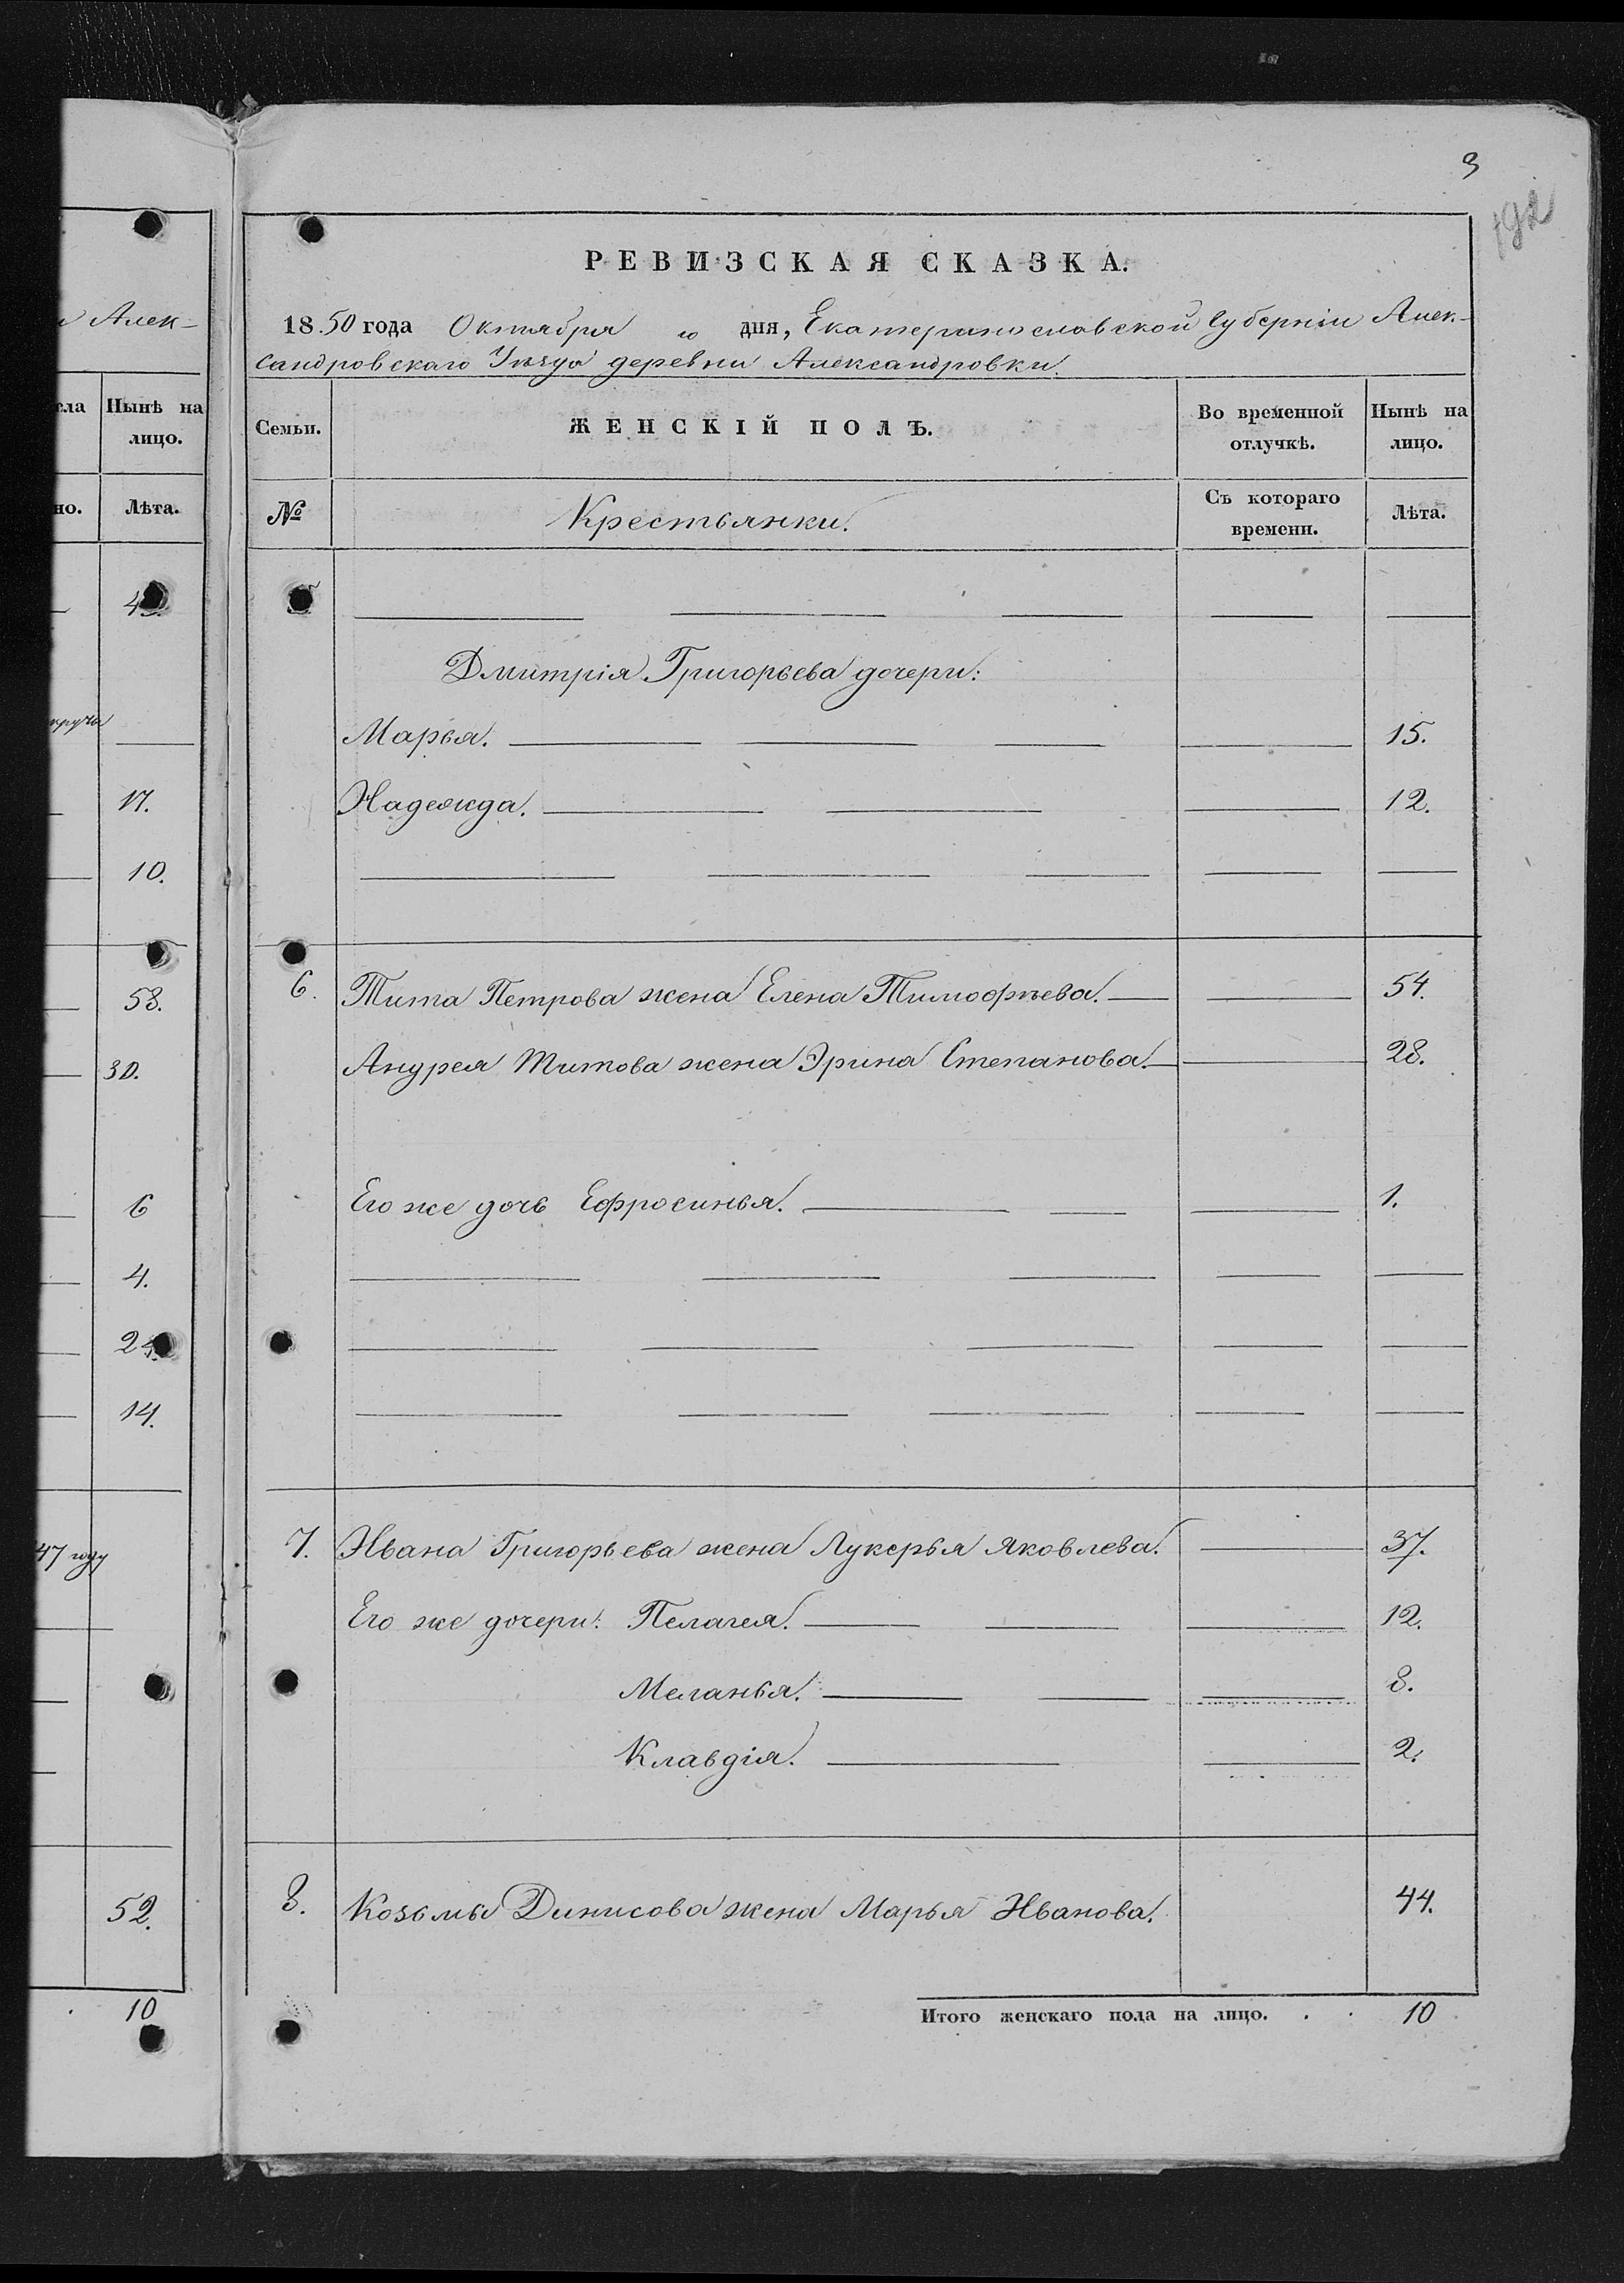 3
192
РЕВИЗСКАЯ СКАЗКА.
1850 года Октября го дня, Екатеринославской Губерніи Алек-
сандровскаго Уѣзда деревни Александровки.
Семьи. ЖЕНСКІЙ ПОЛЪ. Во временной отлучкѣ. Нынѣ на лицо.
№ Крестьянки. Съ котораго времени. Лѣта.
5
Дмитрія Григорьева дочери:
Марья. 15.
Надежда. 12.
6. Тита Петрова жена Елена Тимофѣева. 54.
Андрея Титова жена Эрина Степанова. 28.
Его же дочь Ефросинья. 1.
7. Ивана Григорьева жена Лукерья Яковлева. 37.
Его же дочери: Пелагея. 12.
Меланья. 8.
Клавдія. 2.
8. Козьмы Динисова жена Марья Иванова. 44.
Итого женскаго пола на лицо. . . 10
Алек-
Нынѣ на
лицо.
Лѣта.
17.
10.
58.
30.
6
4.
14.
47 году
52.
10